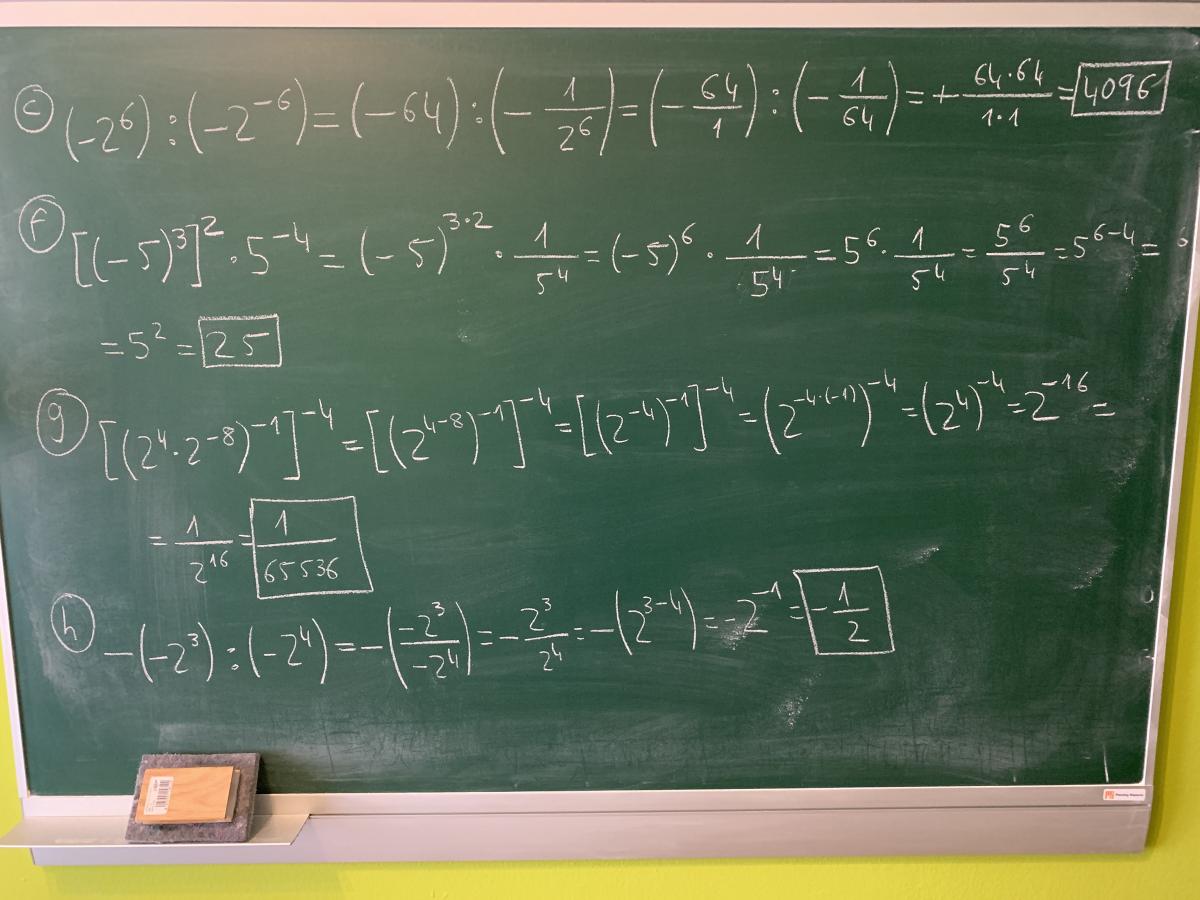 c (-2⁶):(-2⁻⁶)=(-64):(-1/2⁶)=(-64/1):(-1/64)=+64·64/1·1=4096
f [(-5)³]²·5⁻⁴=(-5)³·²·1/5⁴=(-5)⁶·1/5⁴=5⁶·1/5⁴=5⁶/5⁴=5⁶⁻⁴=
=5²=25
g [(2⁴·2⁻⁸)⁻¹]⁻⁴=[(2⁴⁻⁸)⁻¹]⁻⁴=[(2⁻⁴)⁻¹]⁻⁴=(2⁻⁴·⁽⁻¹⁾)⁻⁴=(2⁴)⁻⁴=2⁻¹⁶=
=1/2¹⁶=1/65536
h -(-2³):(-2⁴)=-(-2³/-2⁴)=-2³/2⁴=-(2³⁻⁴)=-2⁻¹=-1/2